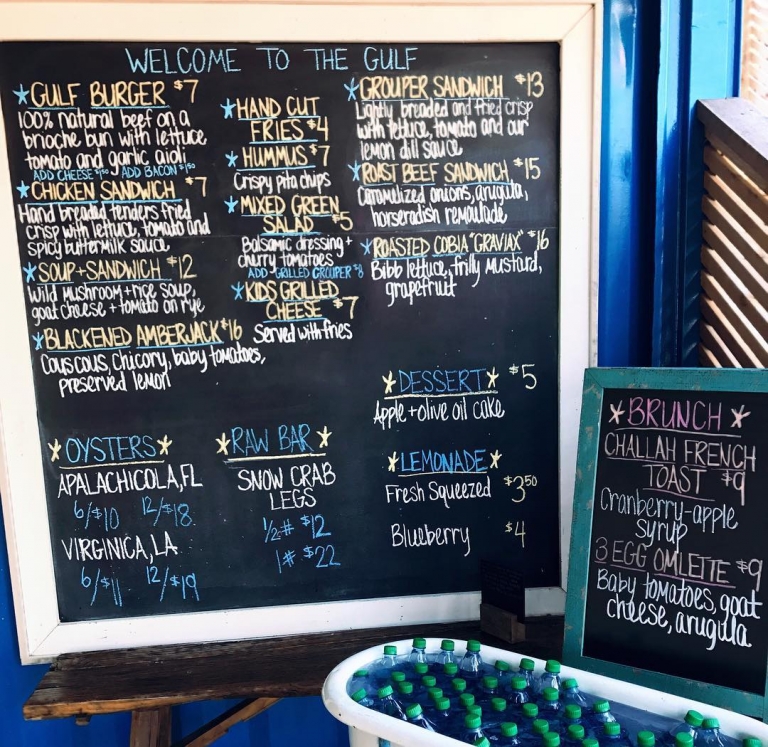 WELCOME TO THE GULF
GULF BURGER $7
100% natural beef on a
brioche bun with lettuce
tomato and garlic aioli
ADD CHEESE $1.50 ADD BACON $1.50
CHICKEN SANDWICH $7
Hand breaded tenders fried
crisp with lettuce, tomato and
spicy buttermilk sauce
SOUP + SANDWICH $12
Wild mushroom + rice soup,
goat cheese + tomato on rye
BLACKENED AMBERJACK $16
Couscous, chicory, baby tomatoes,
preserved lemon
HAND CUT
FRIES $4
HUMMUS $7
Crispy pita chips
MIXED GREEN
SALAD $5
Balsamic dressing +
cherry tomatoes
ADD GRILLED GROUPER $8
KIDS GRILLED
CHEESE $7
Served with fries
GROUPER SANDWICH $13
Lightly breaded and fried crisp
with lettuce, tomato and our
lemon dill sauce
ROAST BEEF SANDWICH $15
Caramelized onions, arugula,
horseradish remoulade
ROASTED COBIA "GRAVLAX" $16
Bibb lettuce, frilly mustard,
grapefruit
DESSERT $5
Apple + olive oil cake
OYSTERS
APALACHICOLA, FL
6/$10 12/$18
VIRGINICA, LA
6/$11 12/$19
RAW BAR
SNOW CRAB
LEGS
1/2# $12
1# $22
LEMONADE
Fresh Squeezed $3.50
Blueberry $4
BRUNCH
CHALLAH FRENCH
TOAST $9
Cranberry-apple
syrup
3 EGG OMLETTE $9
Baby tomatoes, goat
cheese, arugula